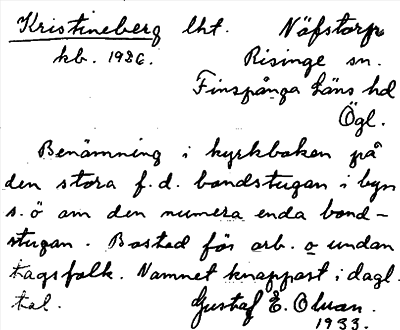 Kristineberg lht. Näfstorp
kb. 1926. Risinge sn.
Finspånga läns hd
Ögl.
Benämning i kyrkboken på
den stora f.d. bondstugan i byn
s.ö om den numera enda bond-
stugan. Bostad för arb. o undan
tagsfolk. Namnet knappast i dagl.
tal. Gustaf E. Olvan.
1933.